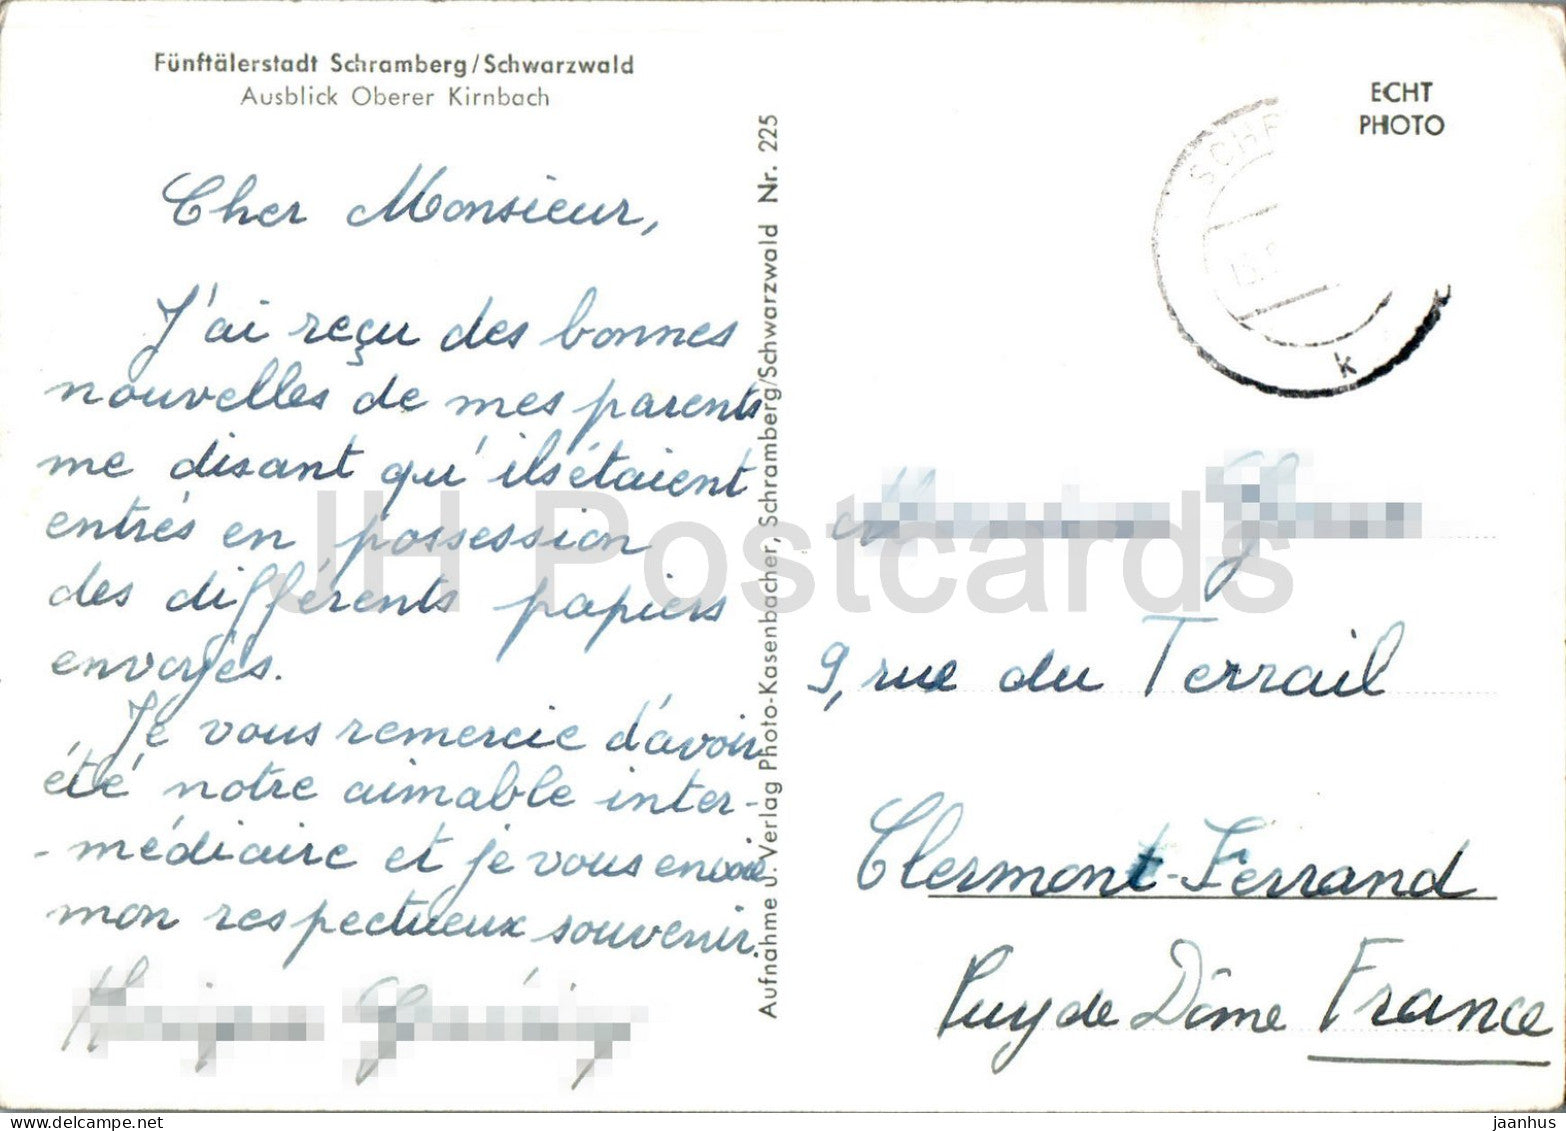 Fünftälerstadt Schramberg/Schwarzwald
Ausblick Oberer Kirnbach
Cher Monsieur,
J'ai reçu des bonnes
nouvelles de mes parents
me disant qu'ils étaient
entrés en possession
des différents papiers
envoyés.
Je vous remercie d'avoir
été notre aimable inter-
-médiaire et je vous envoie
mon respectueux souvenir.
Aufnahme u. Verlag Photo-Kasenbacher, Schramberg/Schwarzwald Nr. 225
ECHT
PHOTO
SCHR
k
9, rue du Terrail
Clermont-Ferrand
Puy de Dôme France
JH Postcards
DELCAMPE.NET
jaanhus